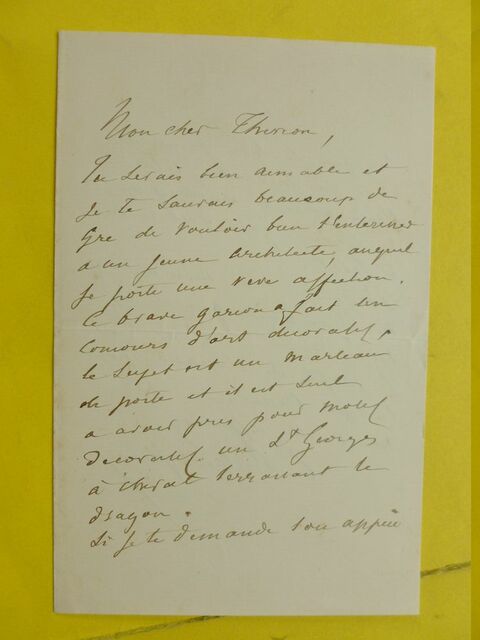 Mon cher Therion,
Tu serais bien aimable et
je te saurais beaucoup de
gre de vouloir bien t'interesser
a un jeune architecte, auquel
je porte une vive affection.
Ce brave garcon a fait un
concours d'art decoratif,
le sujet est un marteau
de porte et il est seul
a avoir pris pour motif
decoratif un St Georges
à cheval terrassant le
dragon.
Si je te demande ton appui